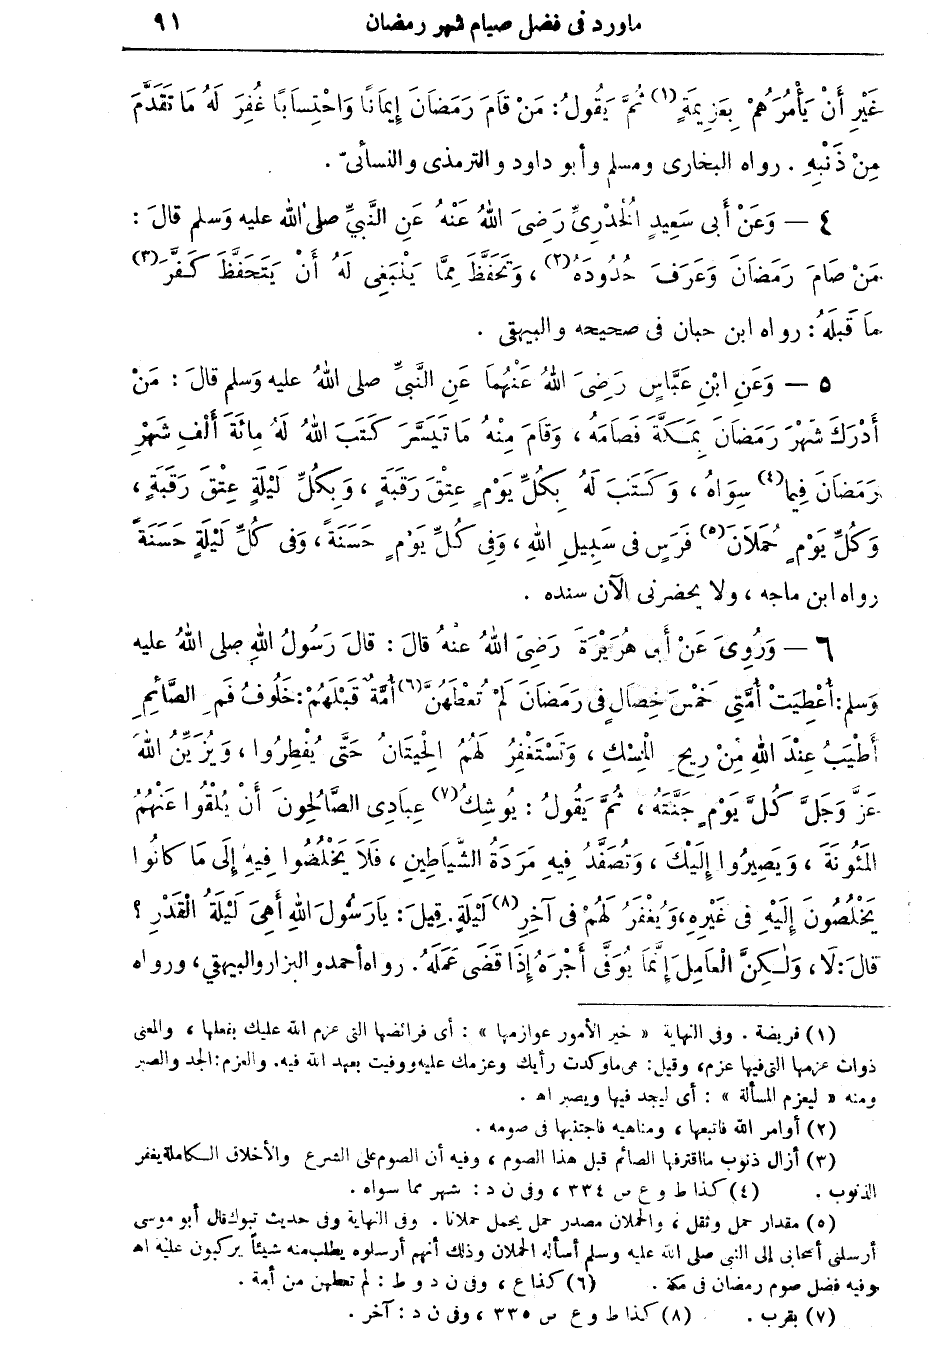 ماورد فى فضل صيام شهر رمضان ٩١
غَيْرِ أَنْ يَأْمُرَهُمْ بِعَزِيمَةٍ(١) ثُمَّ يَقُولُ: مَنْ قَامَ رَمَضَانَ إِيمَانًا وَاحْتِسَابًا غُفِرَ لَهُ مَا تَقَدَّمَ
مِنْ ذَنْبِهِ . رواه البخارى ومسلم وأبو داود والترمذى والنسائىّ .
٤ — وَعَنْ أَبِى سَعِيدٍ الْخُدْرِىِّ رَضِىَ اللهُ عَنْهُ عَنِ النَّبِىِّ صلى الله عليه وَسلم قَالَ :
مَنْ صَامَ رَمَضَانَ وَعَرَفَ حُدُودَهُ(٢) ، وَتَحَفَّظَ مِمَّا يَنْبَغِى لَهُ أَنْ يَتَحَفَّظَ كَفَّرَ(٣)
مَا قَبْلَهُ : رواه ابن حبان فى صحيحه والبيهقى .
٥ — وَعَنِ ابْنِ عَبَّاسٍ رَضِىَ اللهُ عَنْهُمَا عَنِ النَّبِىِّ صلى اللهُ عليه وَسلم قَالَ : مَنْ
أَدْرَكَ شَهْرَ رَمَضَانَ بِمَكَّةَ فَصَامَهُ ، وَقَامَ مِنْهُ مَا تَيَسَّرَ كَتَبَ اللهُ لَهُ مِائَةَ أَلْفِ شَهْرِ
رَمَضَانَ فِيمَا(٤) سِوَاهُ ، وَكَتَبَ لَهُ بِكُلِّ يَوْمٍ عِتْقَ رَقَبَةٍ ، وَبِكُلِّ لَيْلَةٍ عِتْقَ رَقَبَةٍ ،
وَكُلِّ يَوْمٍ حُمْلَانَ(٥) فَرَسٍ فى سَبِيلِ اللهِ ، وَفِى كُلِّ يَوْمٍ حَسَنَةً ، وَفِى كُلِّ لَيْلَةٍ حَسَنَةً
رواه ابن ماجه ، ولا يحضرنى الآن سنده .
٦ — وَرُوِىَ عَنْ أَبِى هُرَيْرَةَ رَضِىَ اللهُ عَنْهُ قَالَ : قَالَ رَسُولُ اللهِ صلى اللهُ عليه
وَسلم : أُعْطِيَتْ أُمَّتِى خَمْسَ خِصَالٍ فِى رَمَضَانَ لَمْ تُعْطَهُنَّ(٦) أُمَّةٌ قَبْلَهُمْ: خَلُوفُ فَمِ الصَّائِمِ
أَطْيَبُ عِنْدَ اللهِ مِنْ رِيحِ الْمِسْكِ ، وَتَسْتَغْفِرُ لَهُمُ الْحِيتَانُ حَتَّى يُفْطِرُوا ، وَيُزَيِّنُ اللهُ
عَزَّ وَجَلَّ كُلَّ يَوْمٍ جَنَّتَهُ ، ثُمَّ يَقُولُ : يُوشِكُ(٧) عِبَادِى الصَّالِحُونَ أَنْ يُلْقُوا عَنْهُمُ
الْمَئُونَةَ ، وَيَصِيرُوا إِلَيْكَ ، وَتُصَفَّدُ فِيهِ مَرَدَةُ الشَّيَاطِينِ ، فَلَا يَخْلُصُوا فِيهِ إِلَى مَا كَانُوا
يَخْلُصُونَ إِلَيْهِ فى غَيْرِهِ، وَيُغْفَرُ لَهُمْ فى آخِرِ(٨) لَيْلَةٍ. قِيلَ : يَارَسُولَ اللهِ أَهِىَ لَيْلَةُ الْقَدْرِ ؟
قَالَ : لَا ، وَلَكِنَّ الْعَامِلَ إِنَّمَا يُوَفَّى أَجْرَهُ إِذَا قَضَى عَمَلَهُ. رواه أحمد والبزار والبيهقى، ورواه
(١) فريضة . وفى النهاية « خير الأمور عوازمها » : أى فرائضها التى عزم الله عليك بفعلها ، والمعنى
ذوات عزمها التى فيها عزم، وقيل: هى ماوكدت رأيك وعزمك عليه ووفيت بعهد الله فيه. والعزم: الجد والصبر
ومنه « ليعزم المسألة » : أى ليجد فيها ويصبر اهـ .
(٢) أوامر الله فاتبعها ، ومناهيه فاجتنبها فى صومه .
(٣) أزال ذنوب مااقترفها الصائم قبل هذا الصوم ، وفيه أن الصوم على الشرع والأخلاق الكاملة يغفر
الذنوب . (٤) كذا ط و ع س ٣٣٤ ، وفى ن د : شهر مما سواه .
(٥) مقدار حمل وثقل ، والحملان مصدر حمل يحمل حملانا . وفى النهاية وفى حديث تبوك قال أبو موسى
أرسلنى أصحابى إلى النبى صلى الله عليه وسلم أسأله الحملان وذلك أنهم أرسلوه يطلب منه شيئاً يركبون عليه اهـ
وفيه فضل صوم رمضان فى مكة . (٦) كذا ع ، وفى ن د و ط : لم تعطهن من أمة .
(٧) يقرب . (٨) كذا ط و ع س ٣٣٥ ، وفى ن د : آخر .